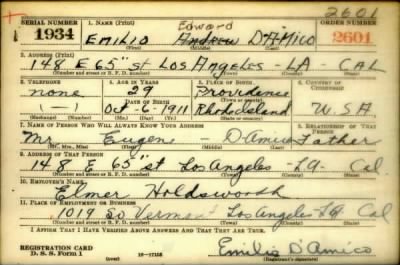 2601
SERIAL NUMBER 1. NAME (Print) Edward ORDER NUMBER
1934 EMILIO Andrew D'AMICO 2601
(First) (Middle) (Last)
2. ADDRESS (Print)
148 E 65" st LOS ANGELES - LA - CAL
(Number and street or R. F. D. number) (Town) (County) (State)
3. TELEPHONE 4. AGE IN YEARS 5. PLACE OF BIRTH 6. COUNTRY OF CITIZENSHIP
none 29 Providence
DATE OF BIRTH (Town or county)
(—) Oct-6-1911 Rhode Island U.S.A.
(Exchange) (Number) (Mo.) (Day) (Yr.) (State or country)
7. NAME OF PERSON WHO WILL ALWAYS KNOW YOUR ADDRESS 8. RELATIONSHIP OF THAT PERSON
Mr. Eugene - D'Amico Father
(Mr., Mrs., Miss) (First) (Middle) (Last)
9. ADDRESS OF THAT PERSON
148 E 65" st Los Angeles - LA. Cal
(Number and street or R. F. D. number) (Town) (County) (State)
10. EMPLOYER'S NAME
Elmer Holdsworth
11. PLACE OF EMPLOYMENT OR BUSINESS
1019 So Vermont Los Angeles LA Cal
(Number and street or R. F. D. number) (Town) (County) (State)
I AFFIRM THAT I HAVE VERIFIED ABOVE ANSWERS AND THAT THEY ARE TRUE.
REGISTRATION CARD
D. S. S. Form 1 16—17105 Emilio D'Amico
(Registrant's signature)